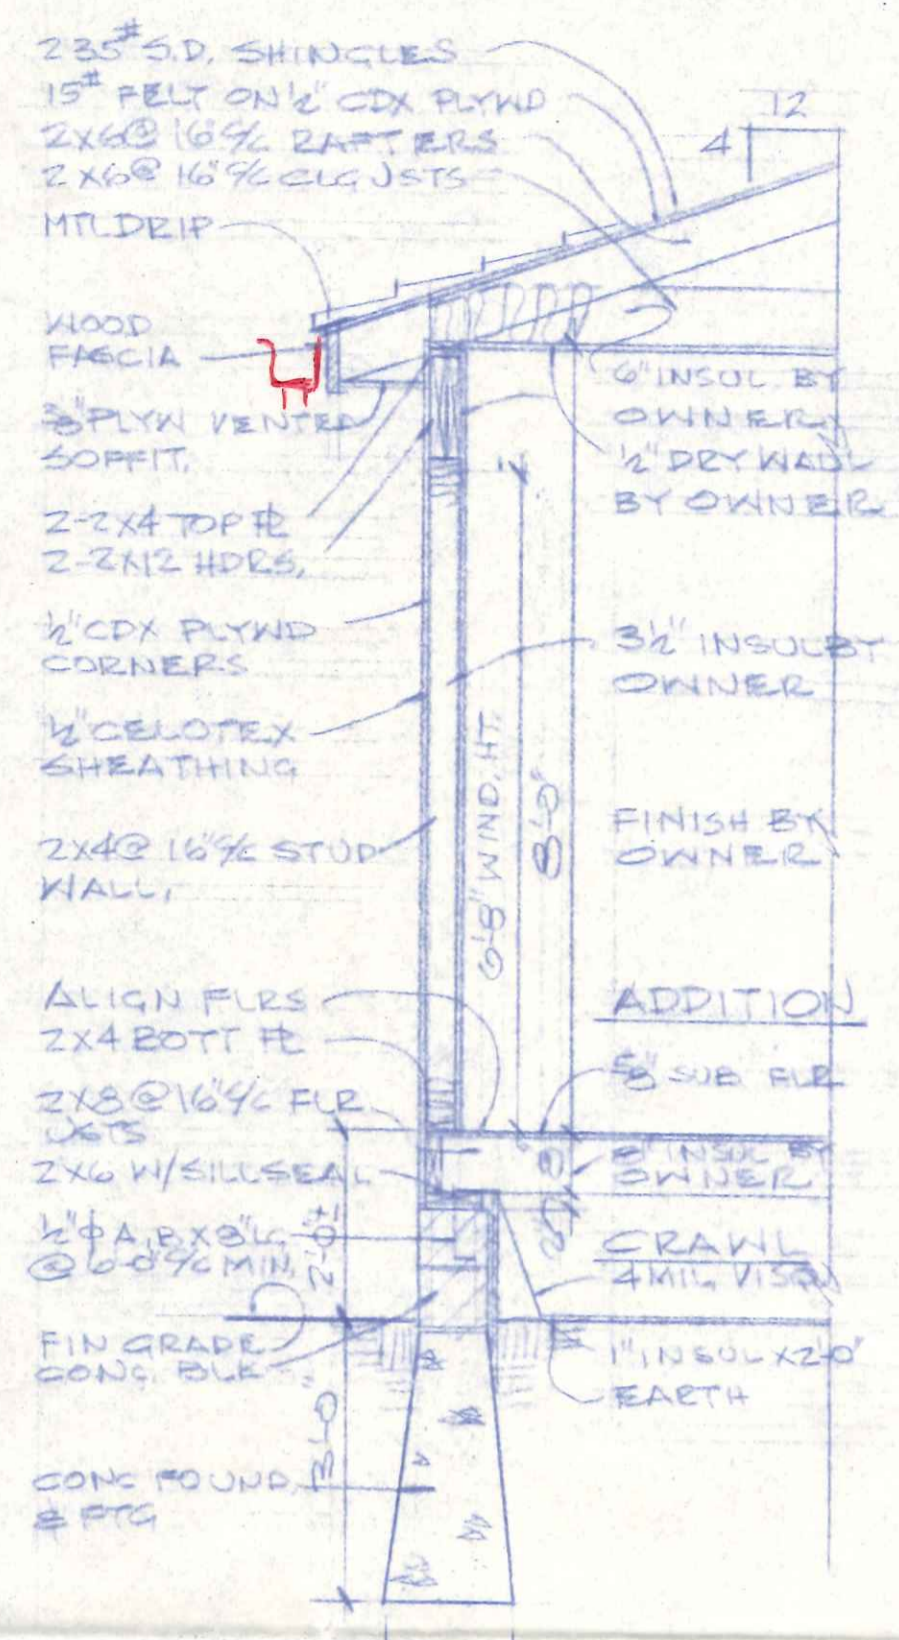 235# S.D. SHINGLES
15# FELT ON ½" CDX PLYWD
2X6@ 16"%c RAFTERS
2X6@ 16"%c CLG JSTS
12
4
MTL DRIP
WOOD
FASCIA
⅜" PLYW VENTED
SOFFIT.
2-2X4 TOP PL
2-2X12 HDRS.
½" CDX PLYWD
CORNERS
½" CELOTEX
SHEATHING
2X4@ 16"%c STUD
WALL.
ALIGN FLRS
2X4 BOTT PL
2X8@16"%c FLR
JSTS
2X6 W/SILLSEAL
½"φ A.B. X 8" LG
@ 6'-0" %c MIN.
FIN GRADE
CONC. BLK
CONC FOUND
& FTG
2'-0"±
3'-0"
6'-8" WIND. HT.
8'-0"
6" INSUL BY
OWNER
½" DRY WALL
BY OWNER
3½" INSUL BY
OWNER
FINISH BY
OWNER
ADDITION
⅝" SUB FLR
8" INSUL BY
OWNER
CRAWL
4 MIL
1" INSUL X 2'-0"
EARTH